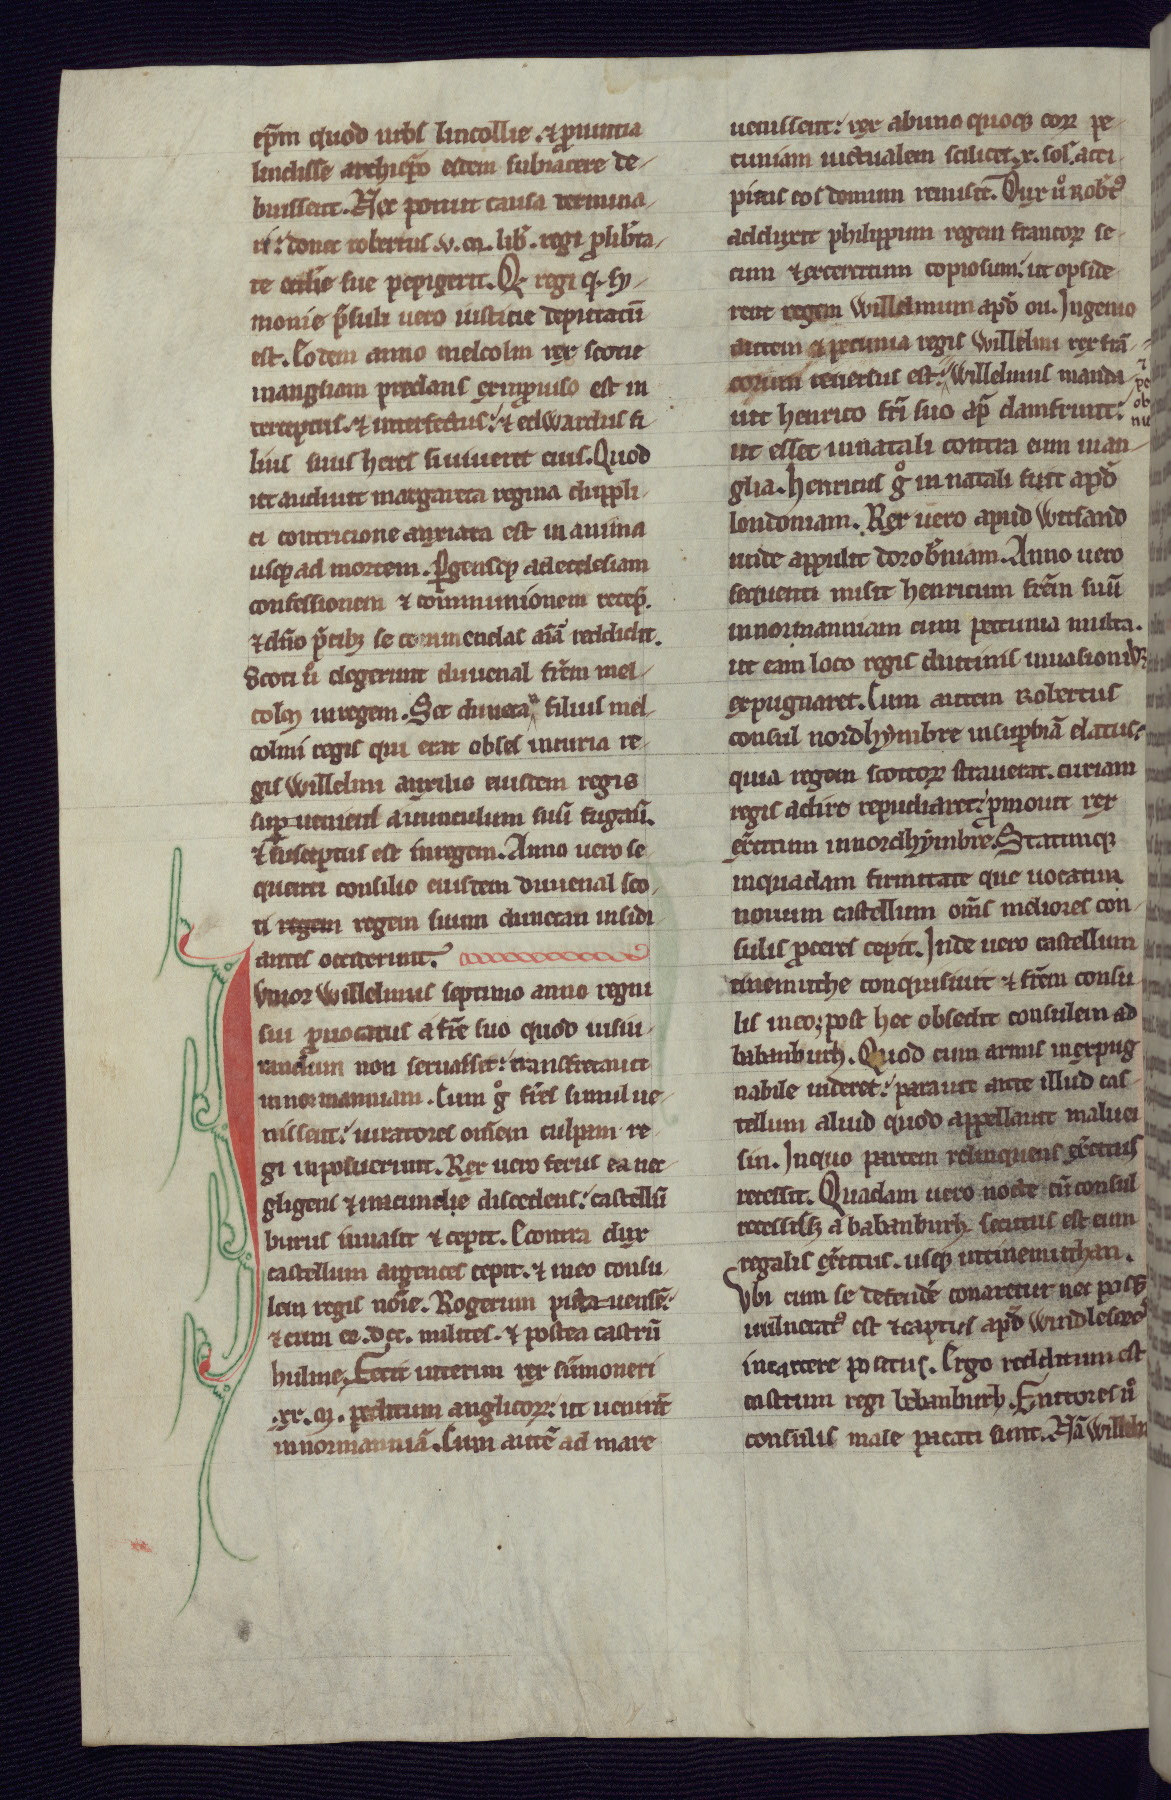 ep̄m quod urbs lincollie. ⁊ ꝓuintia
lindisse archiep̄o eidem subiacere de-
buissent. Nec potuit causa termina-
ri: donec robertus .v. m. lib̄. regi ꝓ lib̄ta-
te ecclīe sue pepigerit. Q̄ regi
monie p̄suli uero iusticie deputatū
est. Eodem anno melcolm rex scotie
in angliam predans ex inprouiso est in
terceptus. ⁊ interfectus: ⁊ edwardus fi
lius suus heres si uiueret eius. Quod
ut audiuit margareta regina duppli-
ci contricione anxiata est in anima
usq; ad mortem. Pgensq; ad ecclesiam
confessionem ⁊ communionem recep̄.
⁊ dn̄o p̄cib; se commendas aīā reddidit.
Scoti ū elegerunt duuenal fr̄em mel-
colm̄ in regem. Set dunecan filius mel-
colmi regis qui erat obses in curia re-
gis Willelmi auxilio eiusdem regis
sup̄ueniens auunculum suū fugauit.
⁊ susceptus est in regem. Anno uero se
quenti consilio eiusdem duuenal sco-
ti regem regem suum dunecan insidi
antes occiderunt.
Iunior Willelmus septimo anno regni
sui ꝓuocatus a fr̄e suo quod iusiu-
randum non seruasset: transfretauit
in normanniam. Cum g° fr̄es simul ue-
nissent: iuratores om̄em culpam re-
gi inposuerunt. Rex uero ferus ea nec-
gligens ⁊ iracundie discedens: castellū
burus inuasit ⁊ cepit. Econtra dux
castellum argentes cepit. ⁊ in eo consu-
lem regis nōie. Rogerum pictauense:
⁊ cum eo .dcc. milites. ⁊ postea castrū
hulme. Fecit interim rex sūmoneri
.xx. m. peditum anglicorꝝ: ut uenirēt
in normanniā. Cum autē ad mare
uenissent: rex ab uno quoq; eorꝝ pe-
cuniam uictualem scilicet .x. sol. acci
piens eos domum remisit. Dux ū Robt᷒
adduxit philippum regem francorꝝ se-
cum ⁊ exercitum copiosum: ut opside-
rent regem Willelmum apd̄ ou. Ingenio
autem ⁊ pecunia regis Willelmi rex frā-
corum reuersus est: Willelmus manda
uit henrico fr̄i suo ap̄ damfrunt:
ut esset in natali contra eum in an-
glia. Henricus g° in natali fuit apd̄
londoniam. Rex uero apud Witsand
inde appulit dorob̄niam. Anno uero
sequenti misit henricum fr̄em suū
in normanniam cum pecunia multa.
ut eam loco regis diutinis inuasionib;
expugnaret. Cum autem Robertus
consul nordhymbre in sup̄biā elatus:
quia regem scottorꝝ strauerat. curiam
regis adire repudiaret: ꝓmouit rex
ex̄citum in nordhymbre. Statimq;
in quadam firmitate que uocatur
nouum castellum om̄s meliores con-
sulis ꝓceres cepit. Inde uero castellum
tinemuthe conquisiuit ⁊ fr̄em consu
lis in eo; post hec obsedit consulem ad
babanburh. Quod cum armis inexpug
nabile uideret: parauit ante illud cas-
tellum aliud quod appellauit maluei
sin. In quo partem relinquens ex̄citus
recessit. Quadam uero nocte cū consul
recessiss; a babanburh secutus est eum
regalis ex̄citus. usq; ut tinemuthan.
Vbi cum se defendē conaretur nec poss;
uulnerat᷒ est ⁊ captus apd̄ Windlesores
in carcere positus. Ergo redditum est
castrum regi bebanburh. Fautores ū
consulis male pacati sunt. Nā Willelm